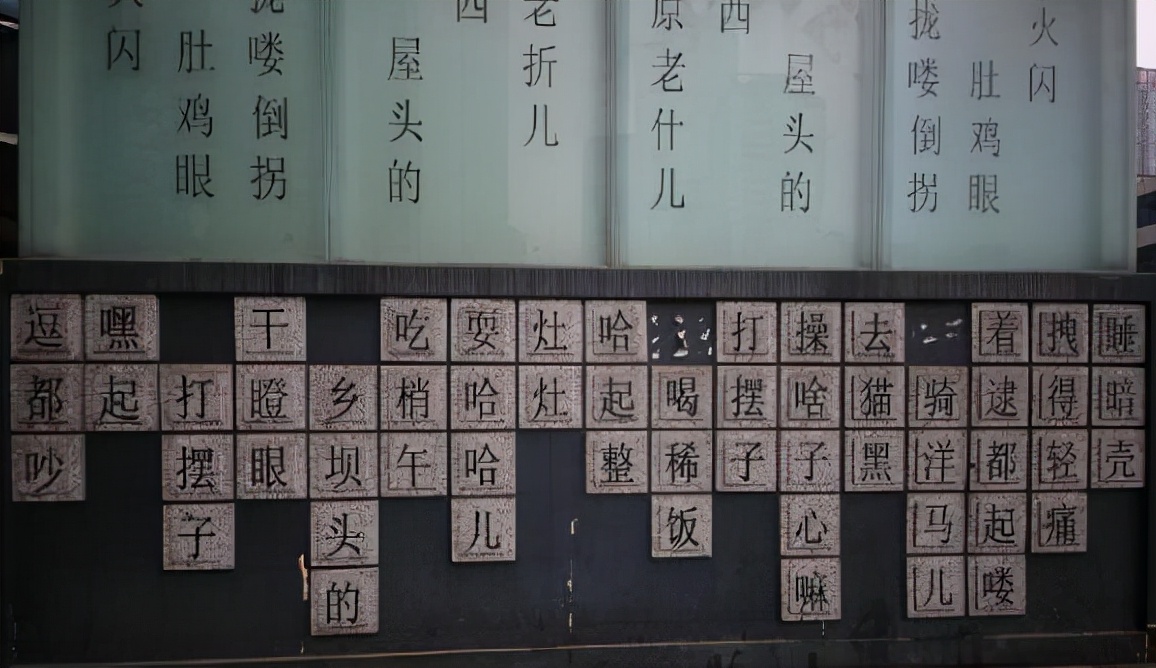 闪
肚鸡眼
喽倒拐
屋头的
老折儿
原老什儿
西
屋头的
拢喽倒拐
肚鸡眼
火闪
逗都吵
嘿起
打摆子
干瞪眼
乡坝头的
吃梢午
耍哈哈儿
灶灶
哈起整
喝稀饭
打摆子
操啥子心嘛
去猫黑
骑洋马儿
着逮都起喽
拽得轻痛
睡暗壳